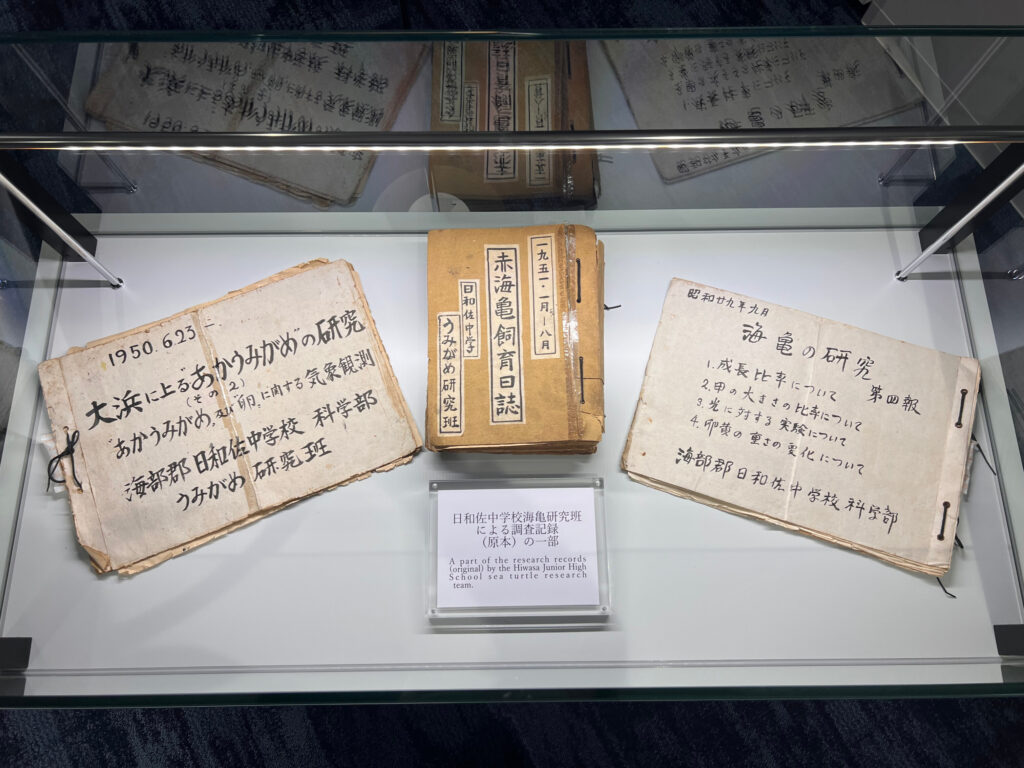 1950.6.23—
大浜に上る"あかうみがめ"の研究
(その2)
"あかうみがめ,及び「卵」に関する気象観測
海部郡日和佐中学校 科学部
うみがめ研究班
一九五一・一月—八月
赤海亀飼育日誌
日和佐中学
うみがめ研究班
昭和廿九年九月
海亀の研究 第四報
1.成長比率について
2.甲の大きさの比率について
3.光に対する実験について
4.卵黄の重さの変化について
海部郡日和佐中学校科学部
日和佐中学校海亀研究班
による調査記録
(原本)の一部
A part of the research records
(original) by the Hiwasa Junior High
School sea turtle research
team.